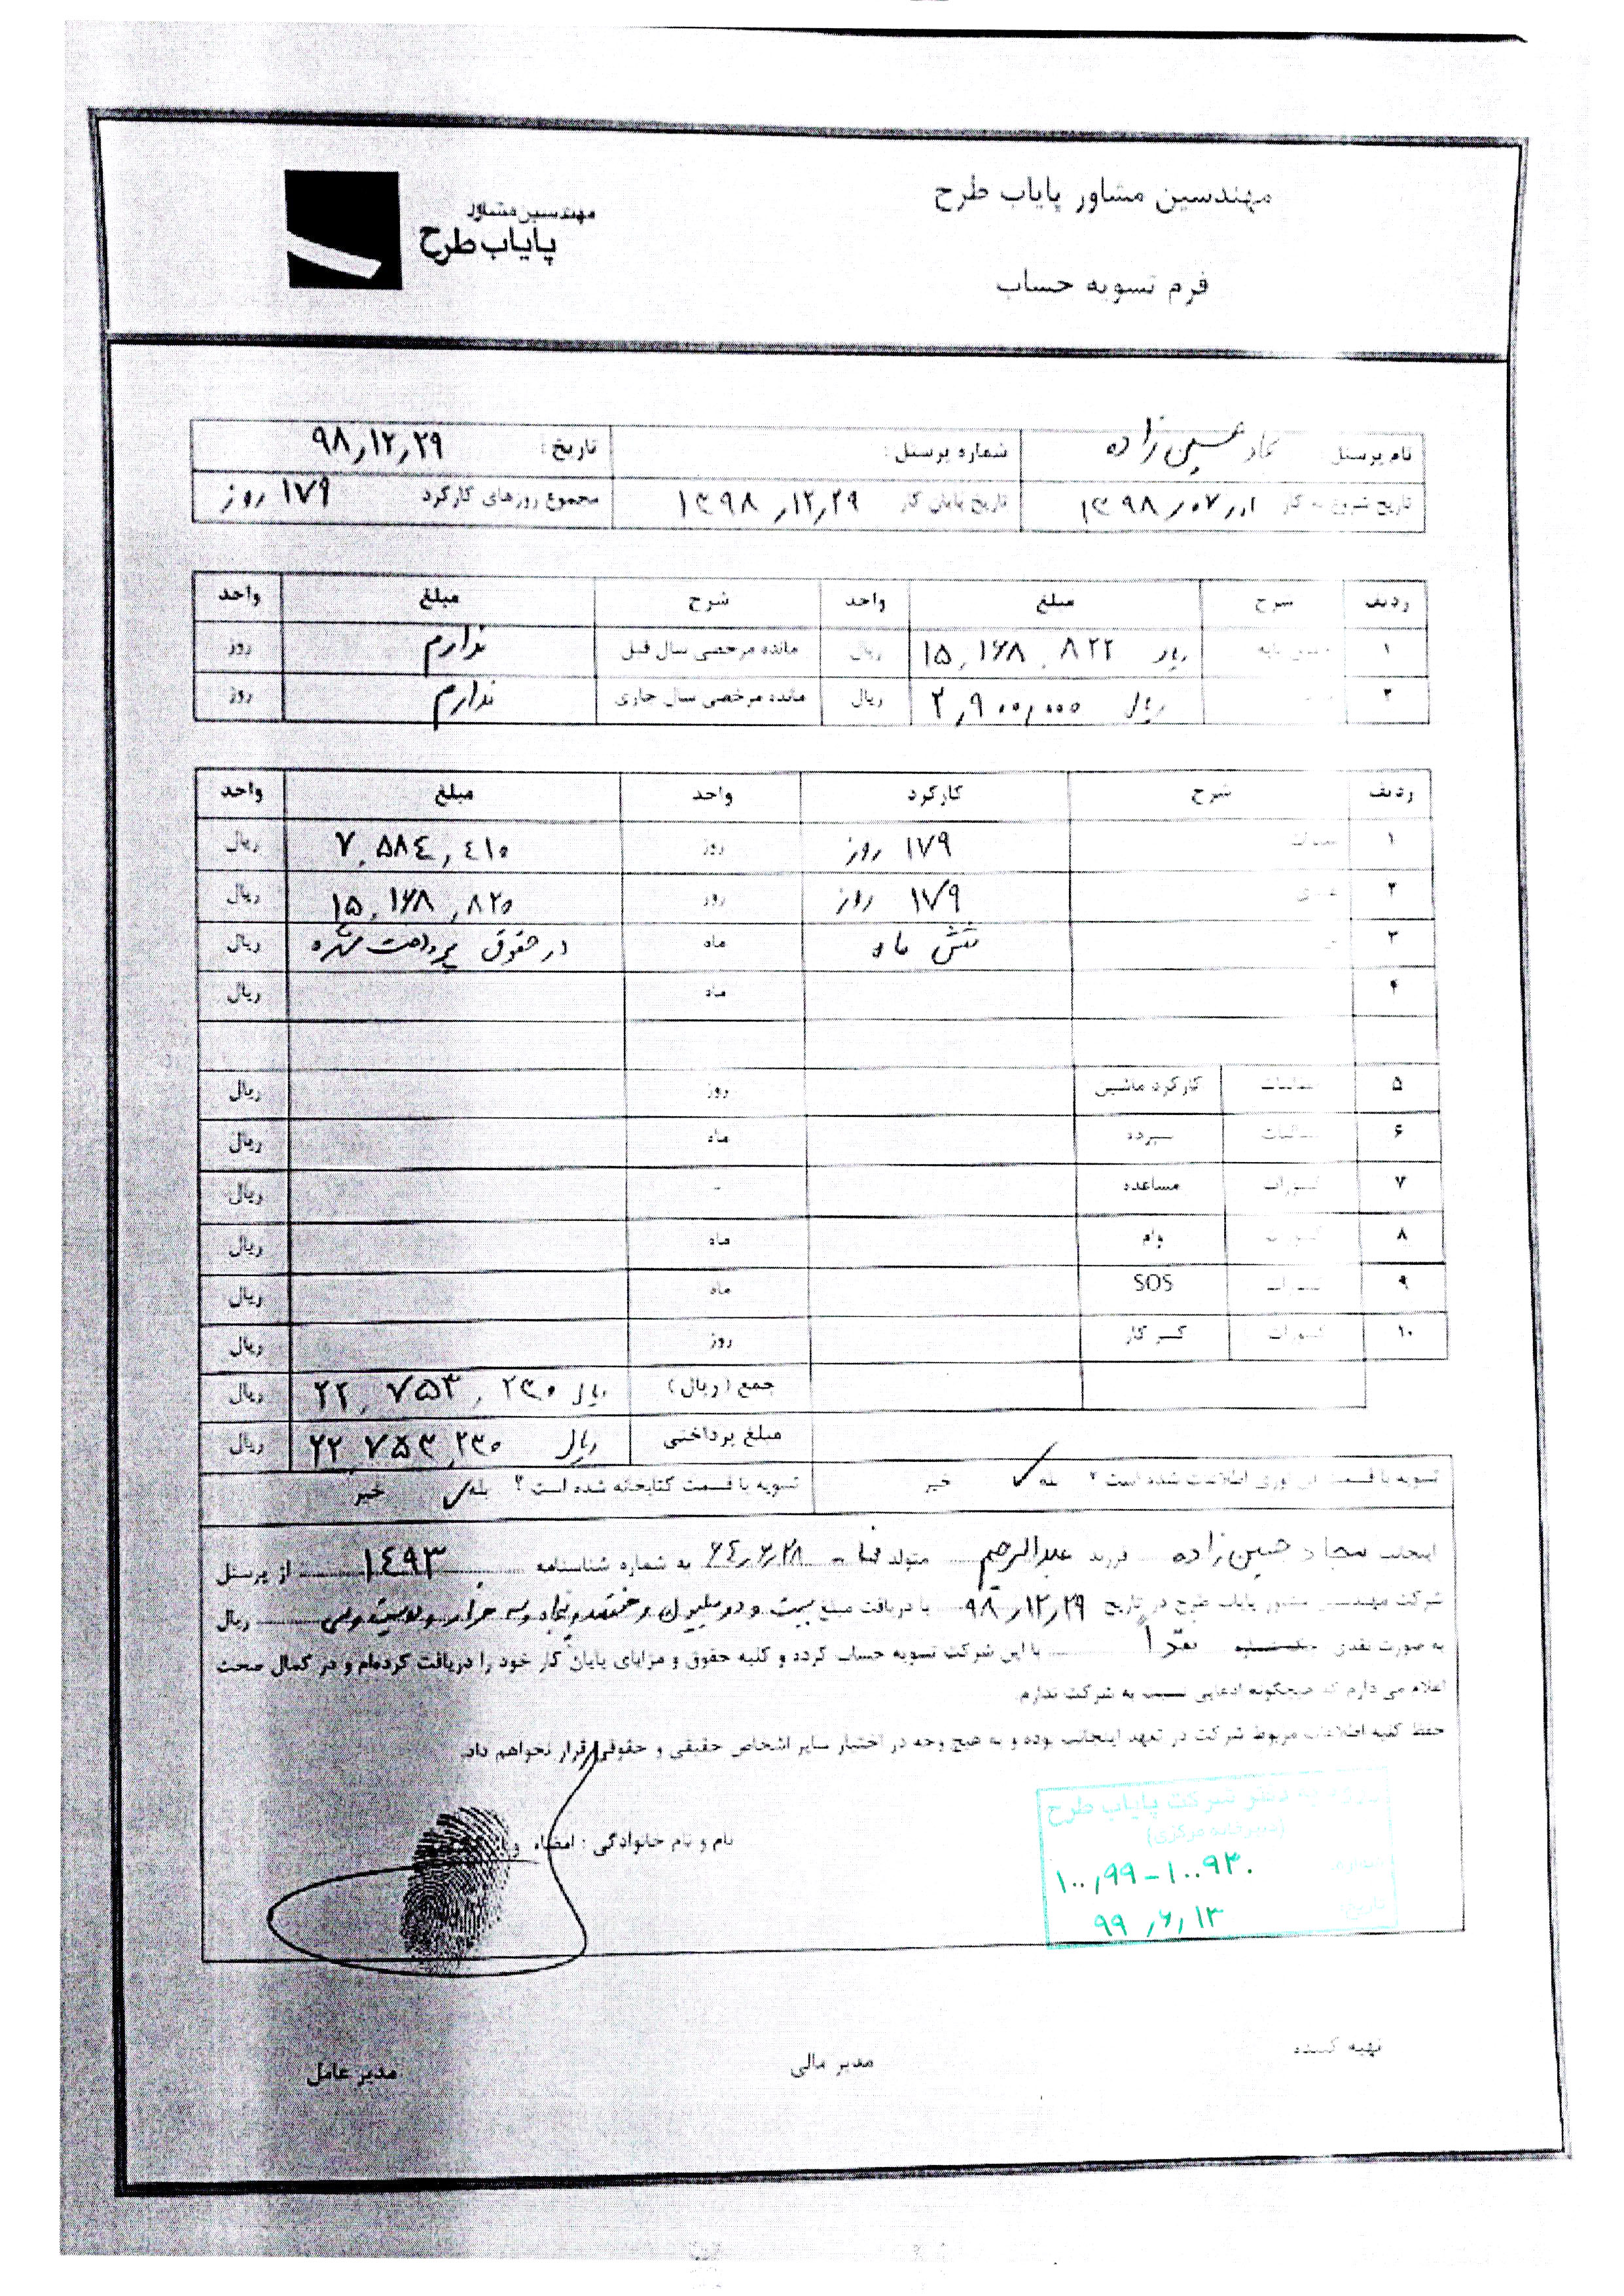 مهندسین مشاور پایاب طرح
مهندسین مشاور
پایاب طرح
فرم تسویه حساب
نام پرسنل : حسین زاده شماره پرسنل : تاریخ : ۹۸٫۱۲٫۲۹
تاریخ شروع به کار ۱۳۹۸٫۰۷٫۰۱ تاریخ پایان کار ۱۳۹۸٫۱۲٫۲۹ مجموع روزهای کارکرد ۱۷۹ روز
ردیف شرح مبلغ واحد شرح مبلغ واحد
۱ پایه ۱۵,۱۶۸,۸۲۲ ریال ریال مانده مرخصی سال قبل ندارم روز
۲ ۲,۹۰۰,۰۰۰ ریال ریال مانده مرخصی سال جاری ندارم روز
ردیف شرح کارکرد واحد مبلغ واحد
۱ ۱۷۹ روز روز ۷,۵۸٤,٤۱۰ ریال
۲ ۱۷۹ روز روز ۱۵,۱۶۸,۸۲۰ ریال
۳ شش ماه ماه در حقوق پرداخت شده ریال
۴ ماه ریال
۵ کارکرد ماشین روز ریال
۶ سپرده ماه ریال
۷ مساعده - ریال
۸ وام ماه ریال
۹ SOS ماه ریال
۱۰ کسورات کسر کار روز ریال
جمع ( ریال ) ۲۲,۷۵۳,۲۳۰ ریال ریال
مبلغ پرداختی ۲۲,۷۵۳,۲۳۰ ریال ریال
تسویه با قسمت فن آوری اطلاعات شده است ؟ بله ✓ خیر تسویه با قسمت کتابخانه شده است ؟ بله ✓ خیر
اینجانب سجاد حسین زاده فرزند عبدالرحیم متولد ٦٤٫٦٫۲۸ به شماره شناسنامه ۱٤۹۳ از پرسنل
شرکت مهندسین مشاور پایاب طرح در تاریخ ۹۸٫۱۲٫۲۹ با دریافت مبلغ بیست و دو میلیون و هفتصد و پنجاه و سه هزار و دویست و سی ریال
به صورت نقدی نقداً با این شرکت تسویه حساب کرده و کلیه حقوق و مزایای پایان کار خود را دریافت کرده‌ام و در کمال صحت
اعلام می دارم که هیچگونه ادعایی نسبت به شرکت ندارم.
حفظ کلیه اطلاعات مربوط شرکت در تعهد اینجانب بوده و به هیچ وجه در اختیار سایر اشخاص حقیقی و حقوقی قرار نخواهم داد.
نام و نام خانوادگی : امضاء و
دفتر شرکت پایاب طرح
(دبیرخانه مرکزی)
شماره: ۱۰۰٫۹۹-۱۰۰۹۳۰
تاریخ: ۹۹٫۶٫۱۳
تهیه کننده مدیر مالی مدیر عامل